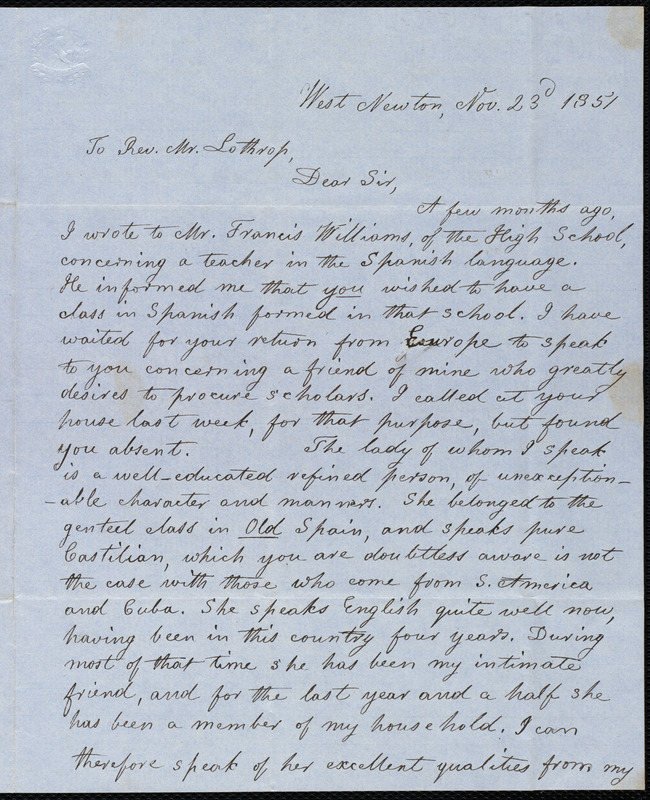 West Newton, Nov. 23d 1851
To Rev. Mr. Lothrop,
Dear Sir,
A few months ago,
I wrote to Mr. Francis Williams, of the High School,
concerning a teacher in the Spanish language.
He informed me that you wished to have a
class in Spanish formed in that school. I have
waited for your return from Europe to speak
to you concerning a friend of mine who greatly
desires to procure scholars. I called at your
house last week, for that purpose, but found
you absent. The lady of whom I speak
is a well-educated refined person, of unexception-
-able character and manners. She belonged to the
genteel class in Old Spain, and speaks pure
Castilian, which you are doubtless aware is not
the case with those who come from S. America
and Cuba. She speaks English quite well now,
having been in this country four years. During
most of that time she has been my intimate
friend, and for the last year and a half she
has been a member of my household. I can
therefore speak of her excellent qualities from my